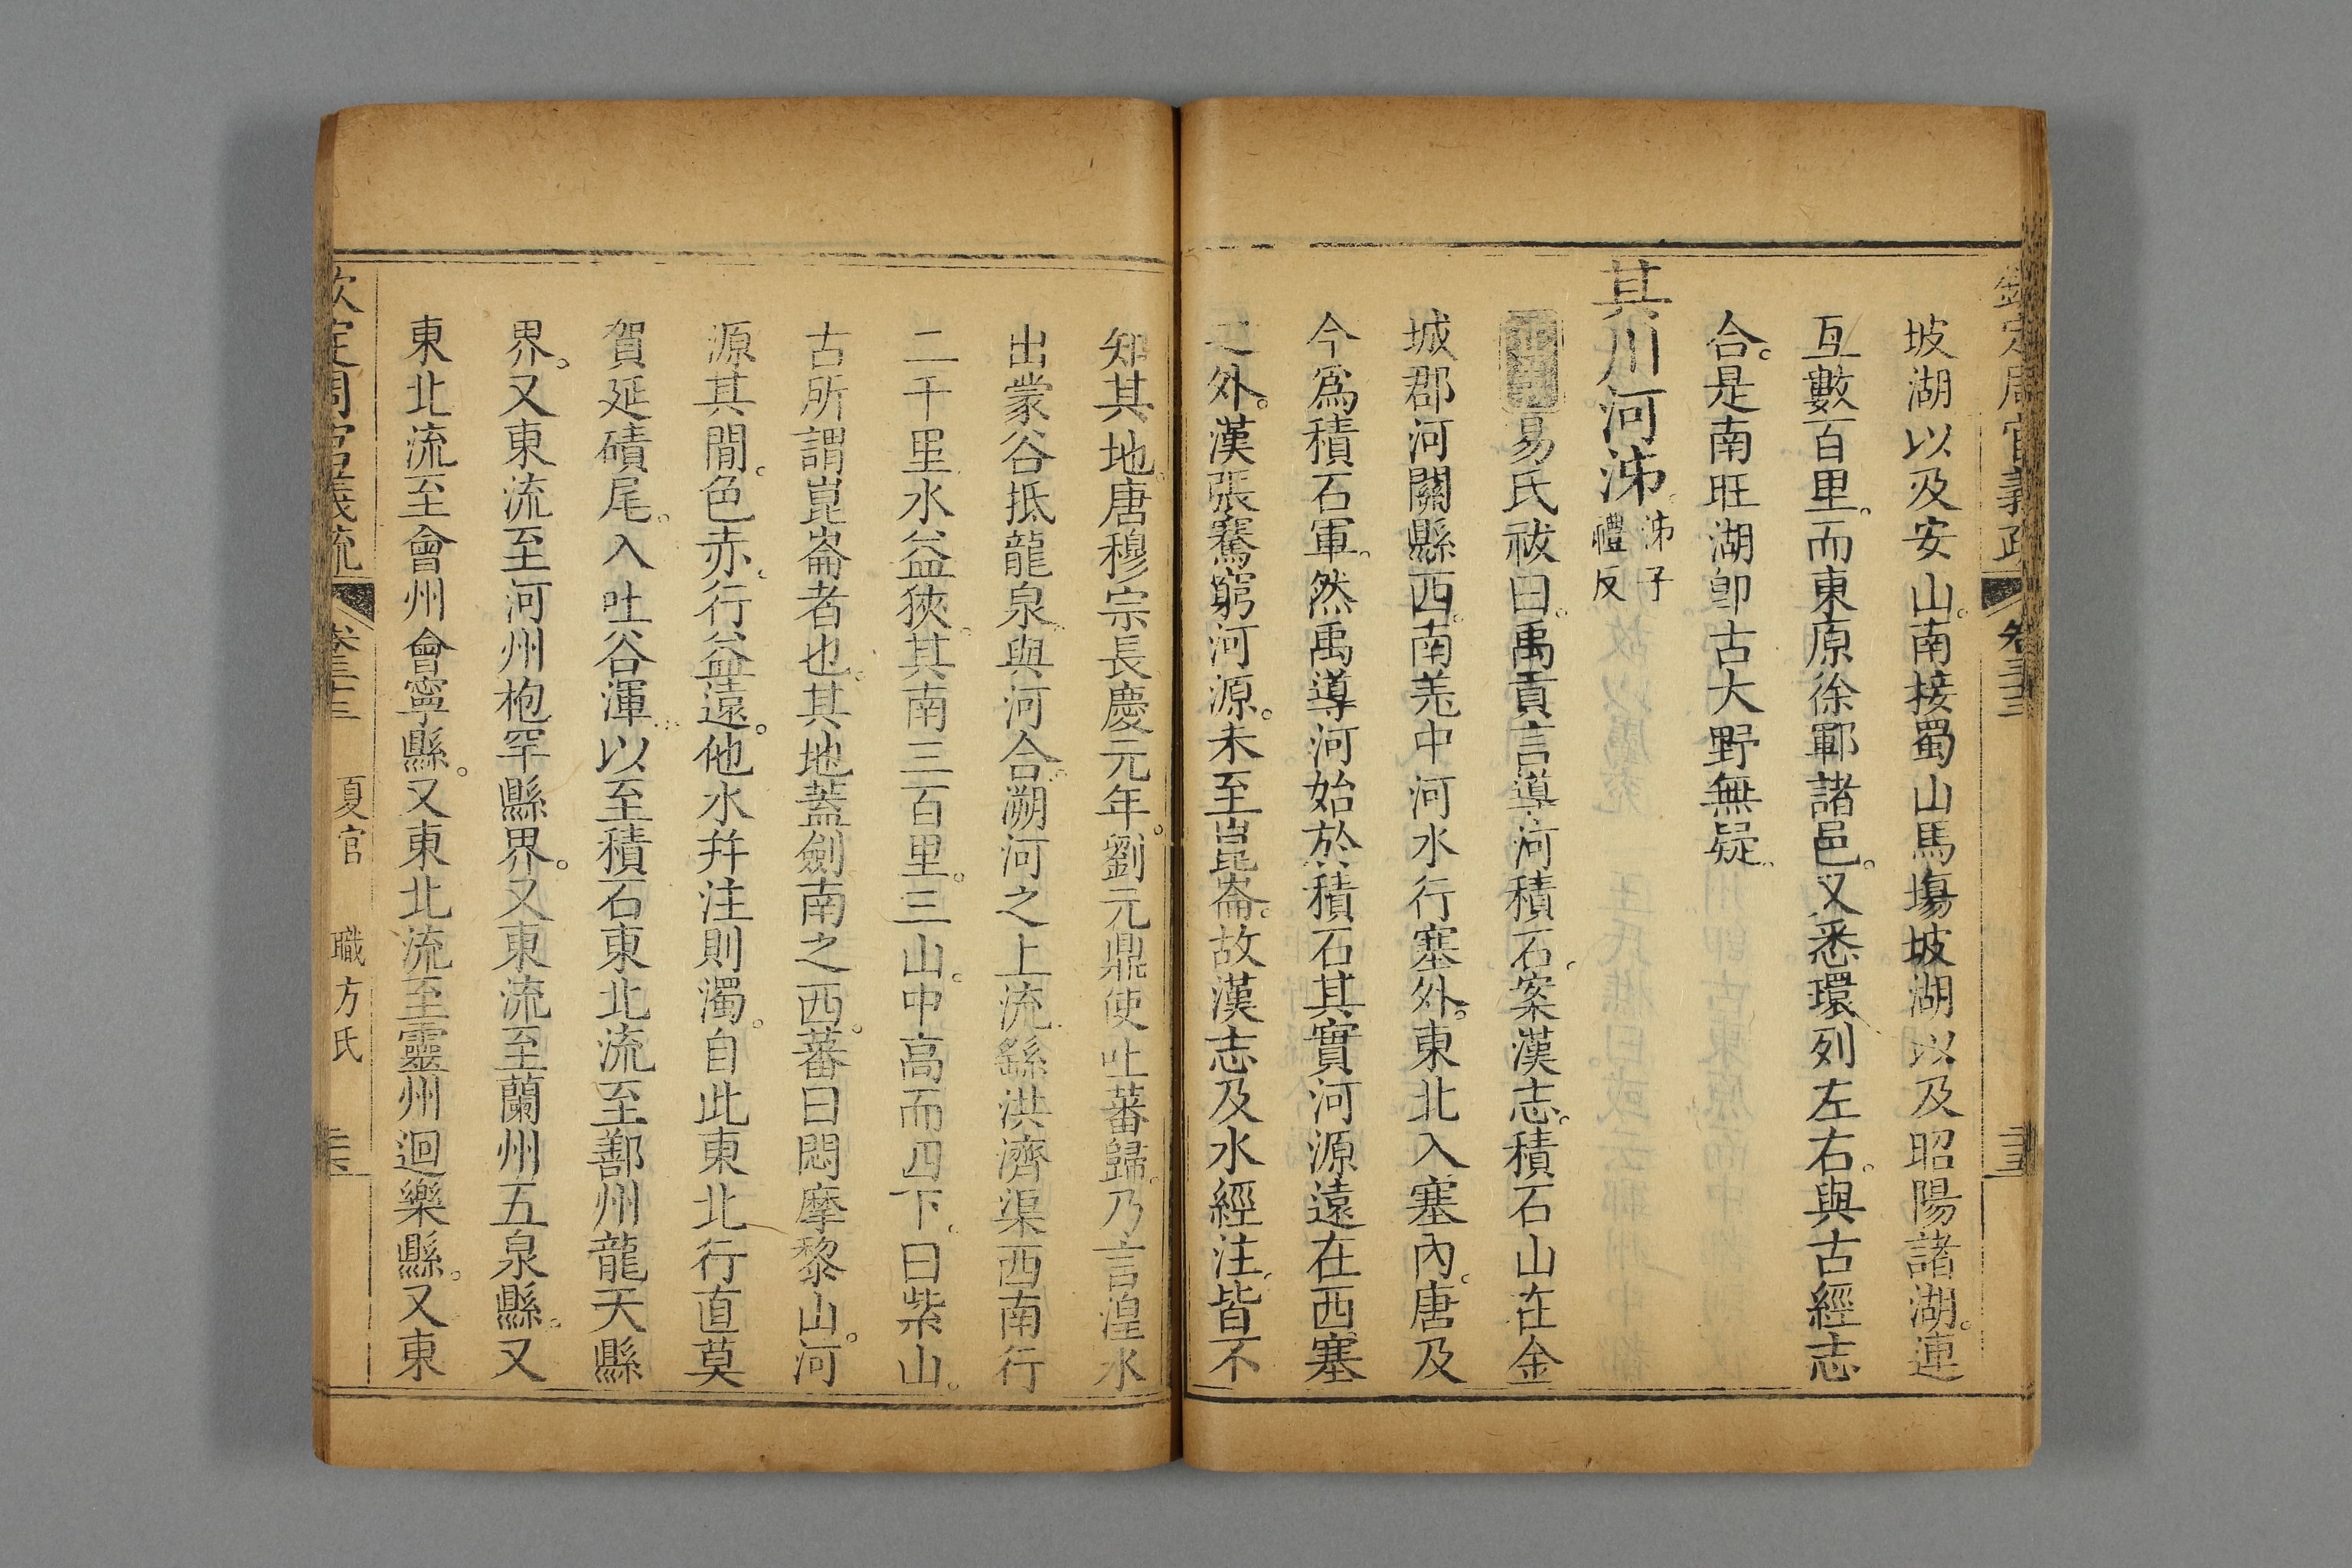 欽定周官義疏 卷三十三
坡湖以及安山。南接蜀山馬塲坡湖以及昭陽諸湖。連
亙數百里。而東原徐鄆諸邑。又悉環列左右。與古經志
合。是南旺湖卽古大野無疑。
其川河泲。泲子禮反
易氏祓曰。禹貢言導河積石。案漢志。積石山在金
城郡河關縣西。南羌中河水行塞外。東北入塞內。唐及
今爲積石軍。然禹導河始於積石其實河源遠在西塞
之外。漢張騫窮河源。未至崑崙。故漢志及水經注。皆不
知其地。唐穆宗長慶元年。劉元鼎使吐蕃歸。乃言湟水
出蒙谷抵龍泉。與河合。溯河之上流。繇洪濟渠西南行
二千里水益狹。其南三百里。三山。中高而四下。曰紫山。
古所謂崑崙者也。其地蓋劍南之西。蕃曰悶摩黎山。河
源其間。色赤。行益遠。他水幷注則濁。自此東北行直莫
賀延磧尾。入吐谷渾。以至積石東北流至鄯州龍天縣
界。又東流至河州枹罕縣界。又東流至蘭州五泉縣。又
東北流至會州會寧縣。又東北流至靈州迴樂縣。又東
欽定周官義疏 卷三十三 夏官 職方氏